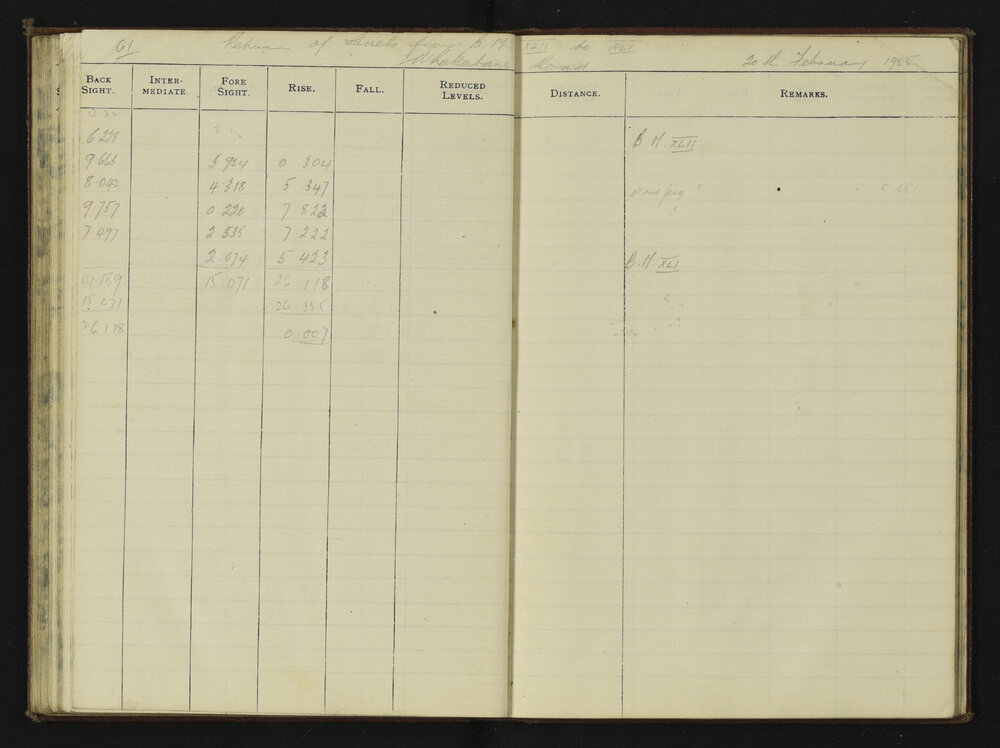 61 Return of Levels from B.M. XLII to XLI
Whakatane Road 20th February 1925
BACK SIGHT. INTER-MEDIATE. FORE SIGHT. RISE. FALL. REDUCED LEVELS. DISTANCE. REMARKS.
6.228 B.M. XLII
9.665 5 924 0 304
8.042 4.318 5.347 Wood peg 5.651
9.757 0.220 7 822
7.497 2 535 7 222
2.074 5 423 B.M. XLI
41 189 15 071 26 118
15.071 26 125
26 118 0 007